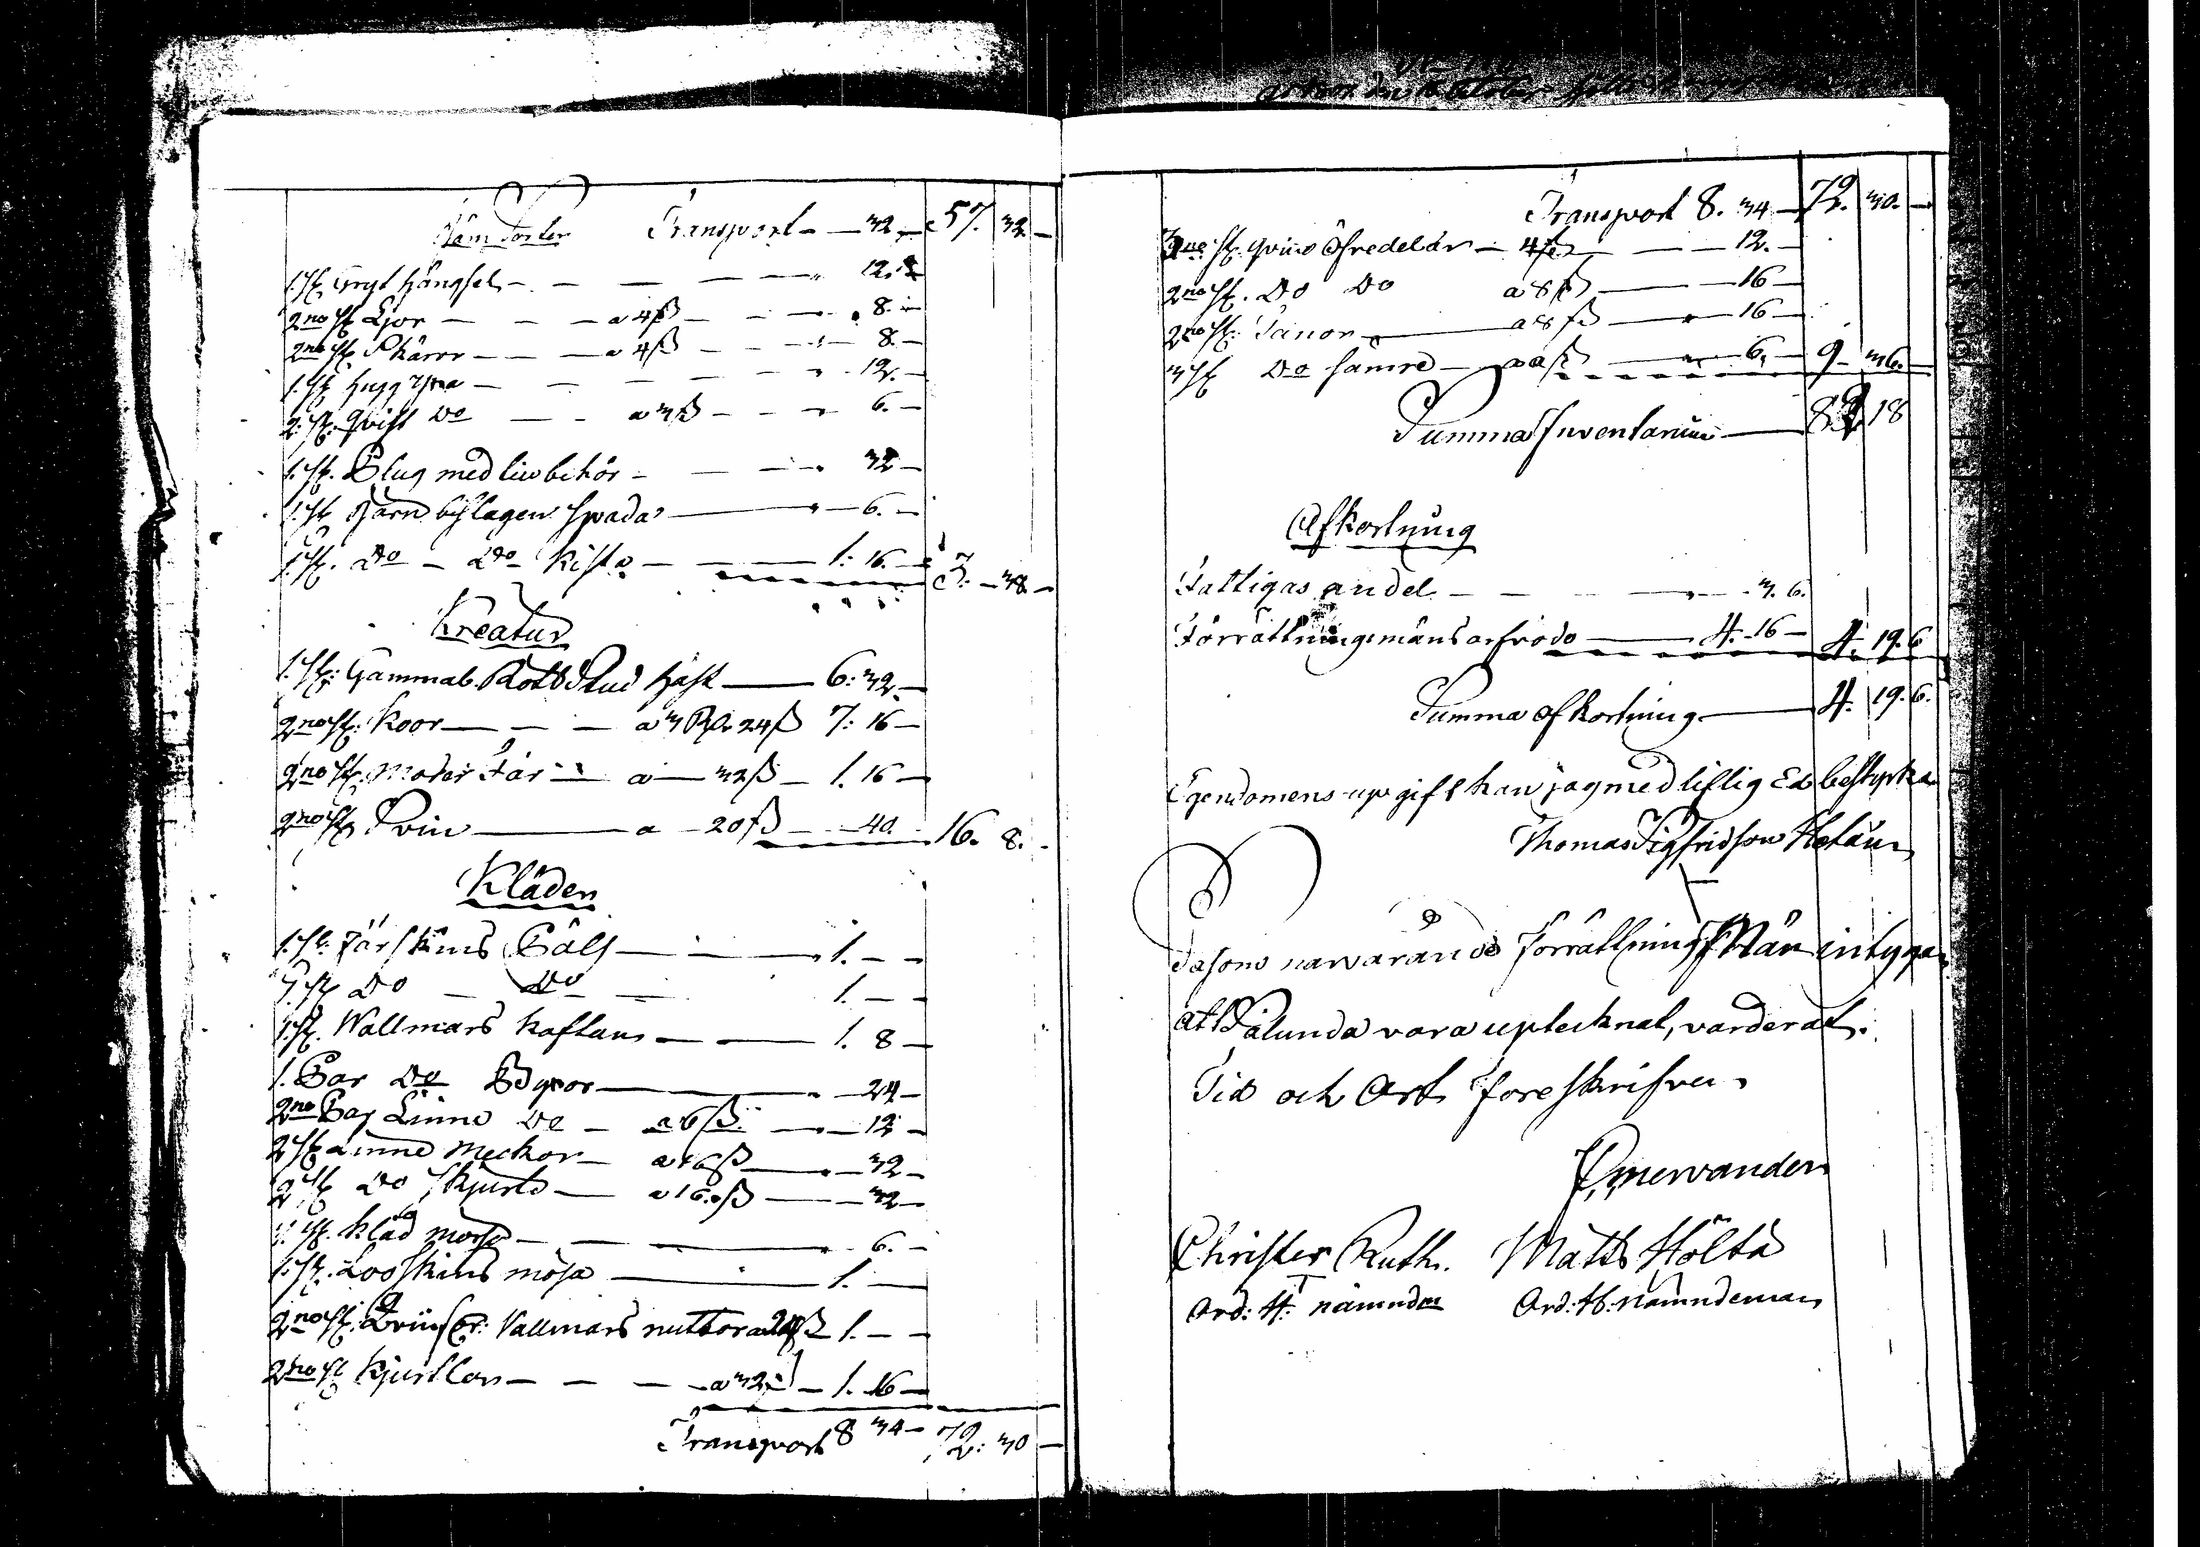 Transport — 32 — 57. 32 —
1. st. Gryt hängsel — — — — 12.
2no st Ljor — — — a 4ß — — 8. —
2no st Skäror — — — a 4ß — — — 8. —
1. st hugg yxa — — — — — 12. —
2. st. qvist do — — a 3ß — — — 6. —
1. st. Plug med tilbehör — — — 32 —
1. st Järn beslagen spada — 6. —
1. st. do — do Kista — 1: 16. — 3. — 38. —
Kreatur
1. st. Gammal Rött Stud häst — 6: 32. —
2no st. Koor — — — a 3 Rdr 24ß 7: 16 —
2no st. Moder Får — a — 32ß — 1. 16 —
2no st Svin — a — 20ß — 40. 16. 8. —
Kläden
1. st. Fårskins Päls — — 1. — —
1. st do — do — 1. — —
1. st. Wallmars kaftan — — 1. 8 —
1. Par do Bÿxor — 24 —
2no Par Linne do — a 6ß — 12 —
2 st Linne Meckor — a 16ß — 32 —
2 st do skjurto — a 16. ß — 32 —
1. st. kläd — — 6. —
1. st. Looskins mösa — 1. —
2no st. Wallmars a 24ß 1. — —
2no st Kjurtlar — — — a 32ß — 1. 16 —
Transport 8 34 — 72: 30 —
Transport 8. 34 — 72. 30. —
3ne st. qvins öfvredelar — 4ß — — 12. —
2no st. do do a 8ß — 16 —
2no st. a 8ß — 16 —
3 st do sämre — a 2ß — 6. — 9 — 36. —
Summa Inventarium — 82 18
Afkortning
Fattigas andel — — — — 3. 6.
Förrättningsmäns arfvode — 4. 16 — 4. 19. 6
Summa afkortning — 4. 19. 6.
Egendomens upgift kan jag med liflig Ed bestyrka
Thomas Sigfridson
Förrättnings Män intyga
att Sålunda vara uptecknat, värderat.
Tid och Ort föreskrifven.
Christer Ruth. Matts Hölttä
Ord: H. nämndm Ord: H: Nämndeman